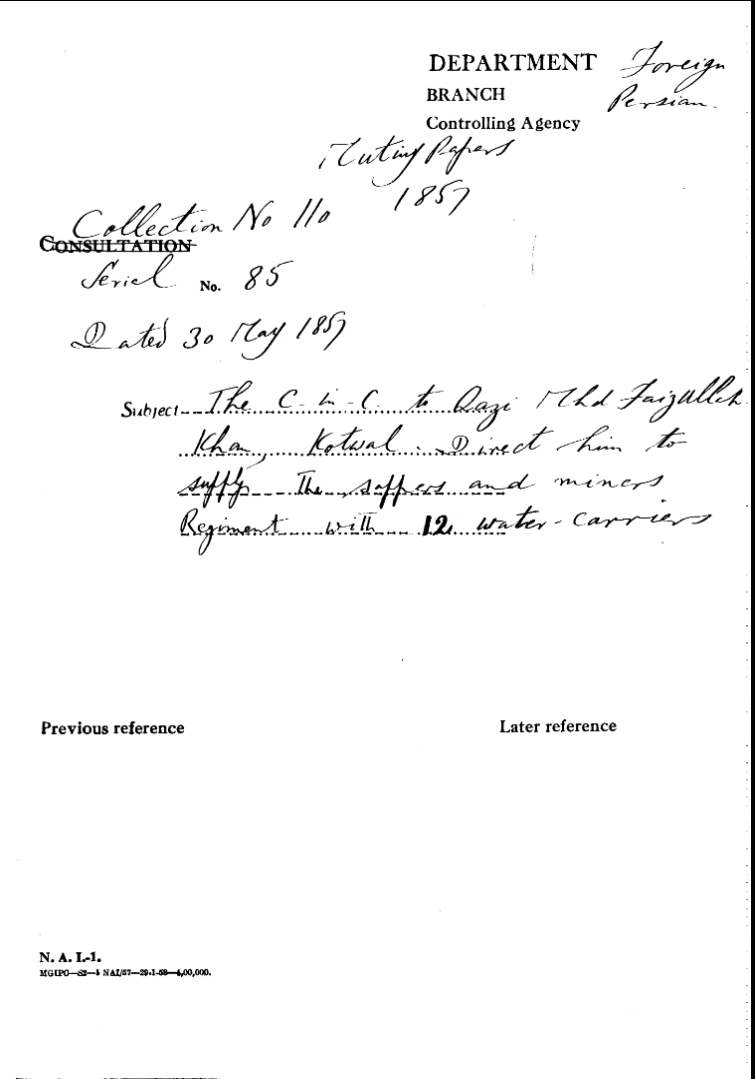 DEPARTMENT Foreign
BRANCH Persian.
Controlling Agency
Mutiny Papers
1857
Collection No 110
CONSULTATION
Serial No. 85
Dated 30 May 1857
Subject The C-in-C to Qazi Mhd Faizullah
Khan, Kotwal. Direct him to
supply The sappers and miners
Regiment with 12 water-carriers
Previous reference Later reference
N. A. I.-1.
MGIPC—S2—5 NAI/57—29-1-58—4,00,000.